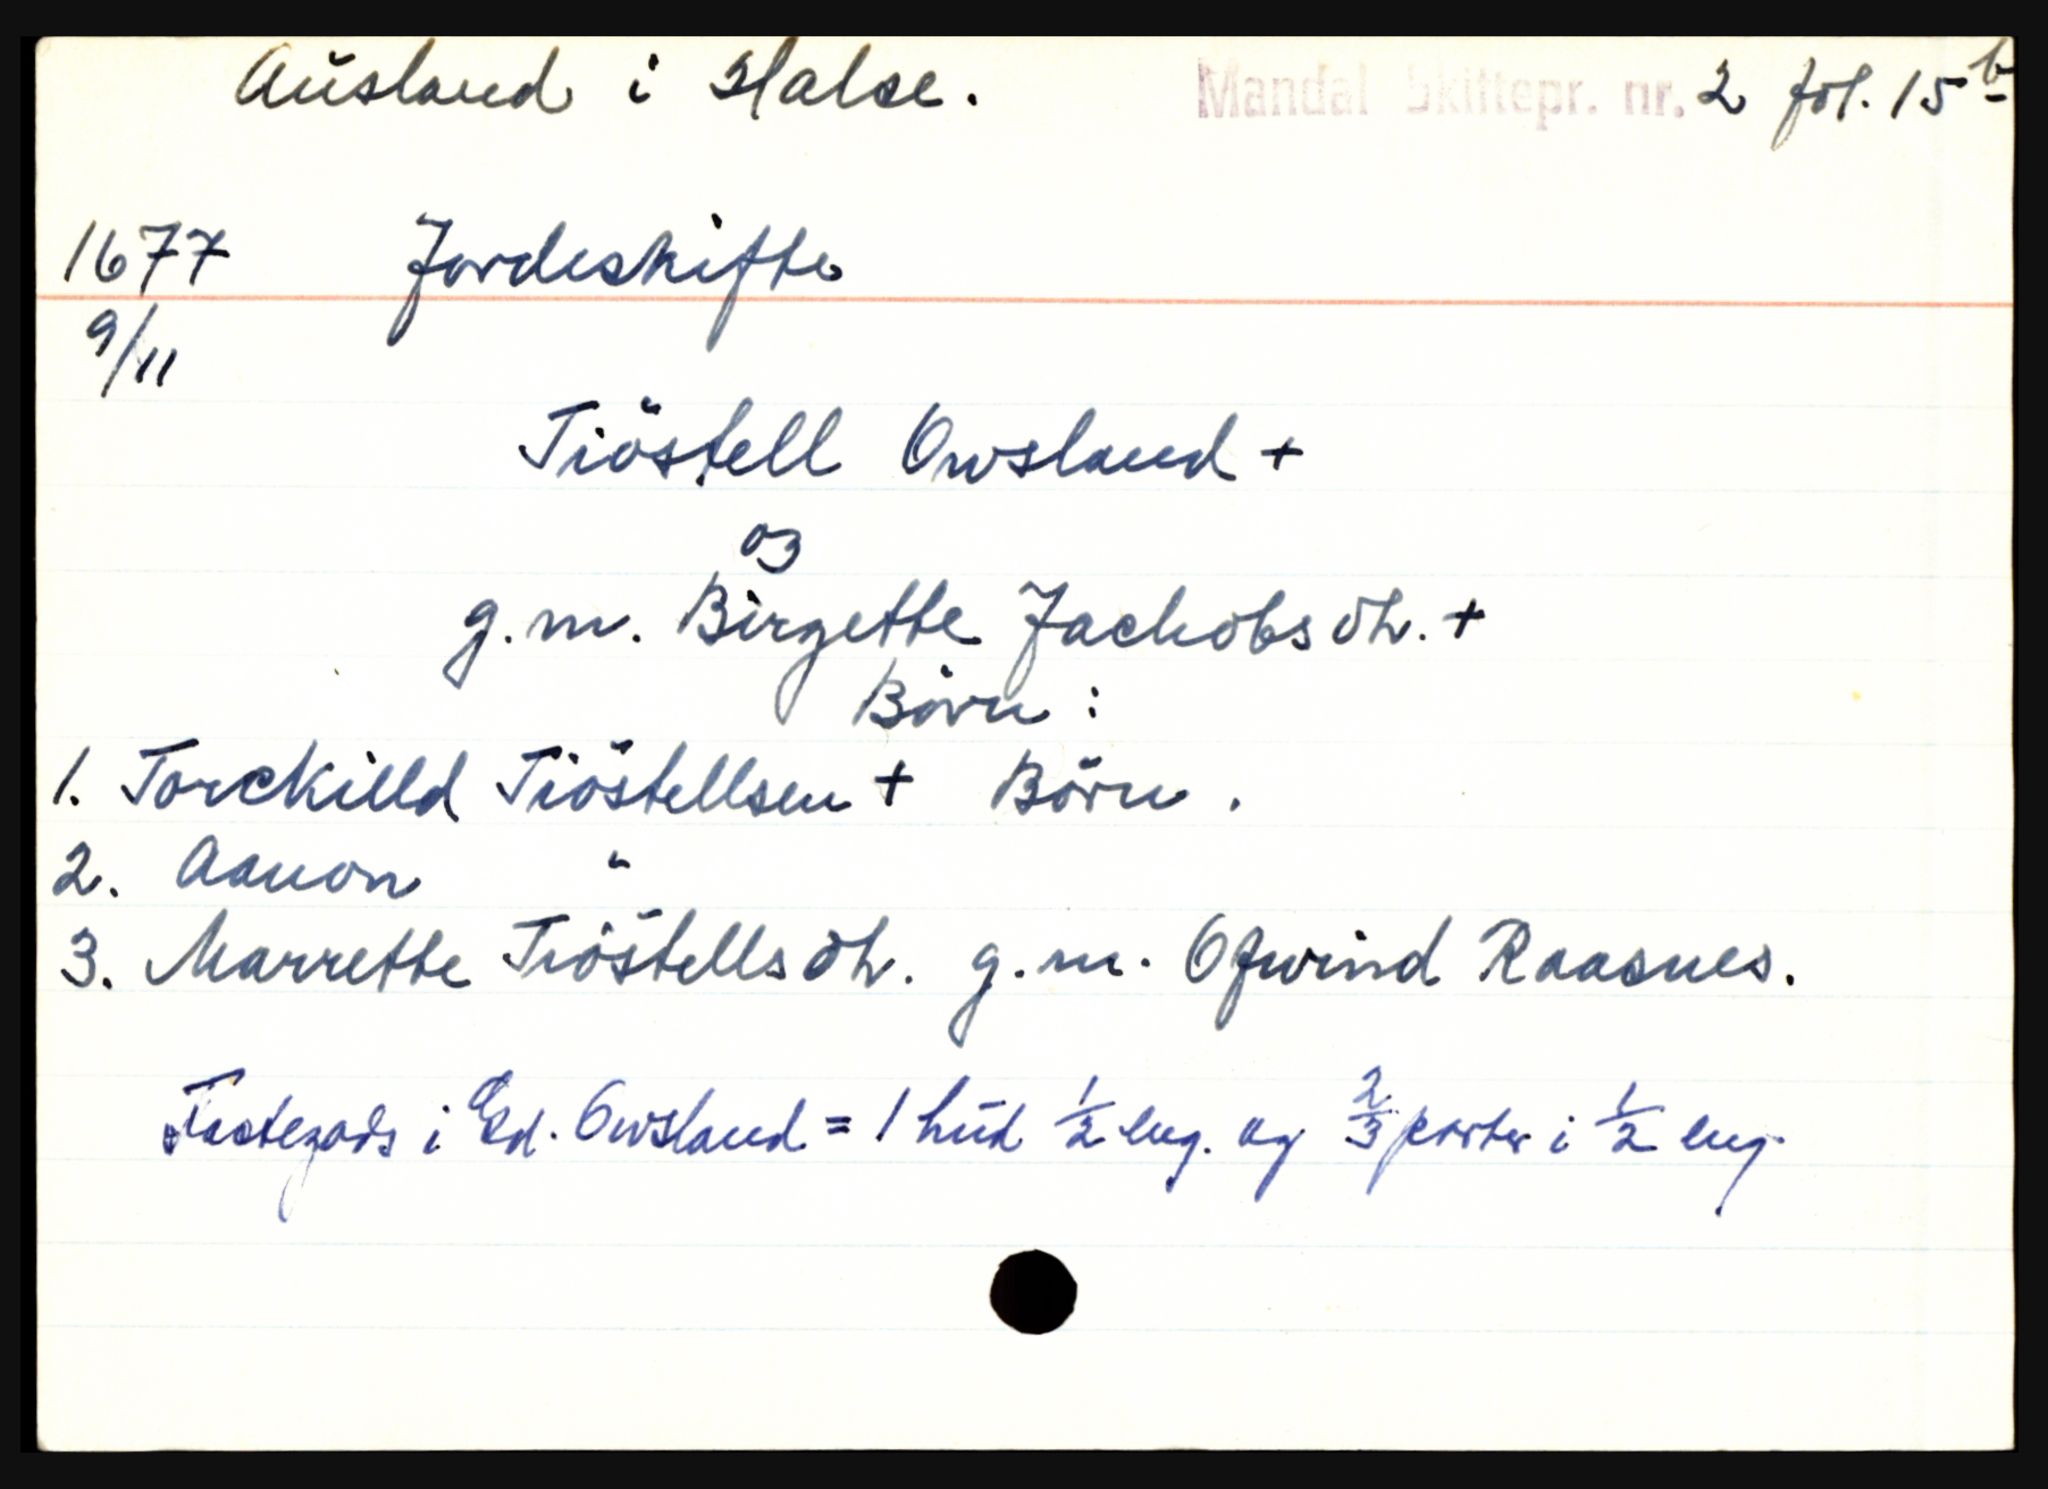 Ausland i Halse. Mandal Skiftepr. nr. 2 fol. 15 b
1677 Jordeskifte
9/11
Tiöstell Owsland +
og
g.m. Birgette Jachobsdtr. +
Børn :
1. Torckilld Tiöstellsen + Börn.
2. Aanon "
3. Marrette Tiöstellsdtr. g.m. Ofwind Raasnes.
i Gd. Owsland = 1 hud 1/2 eng. og 2/3 parter i 1/2 eng.